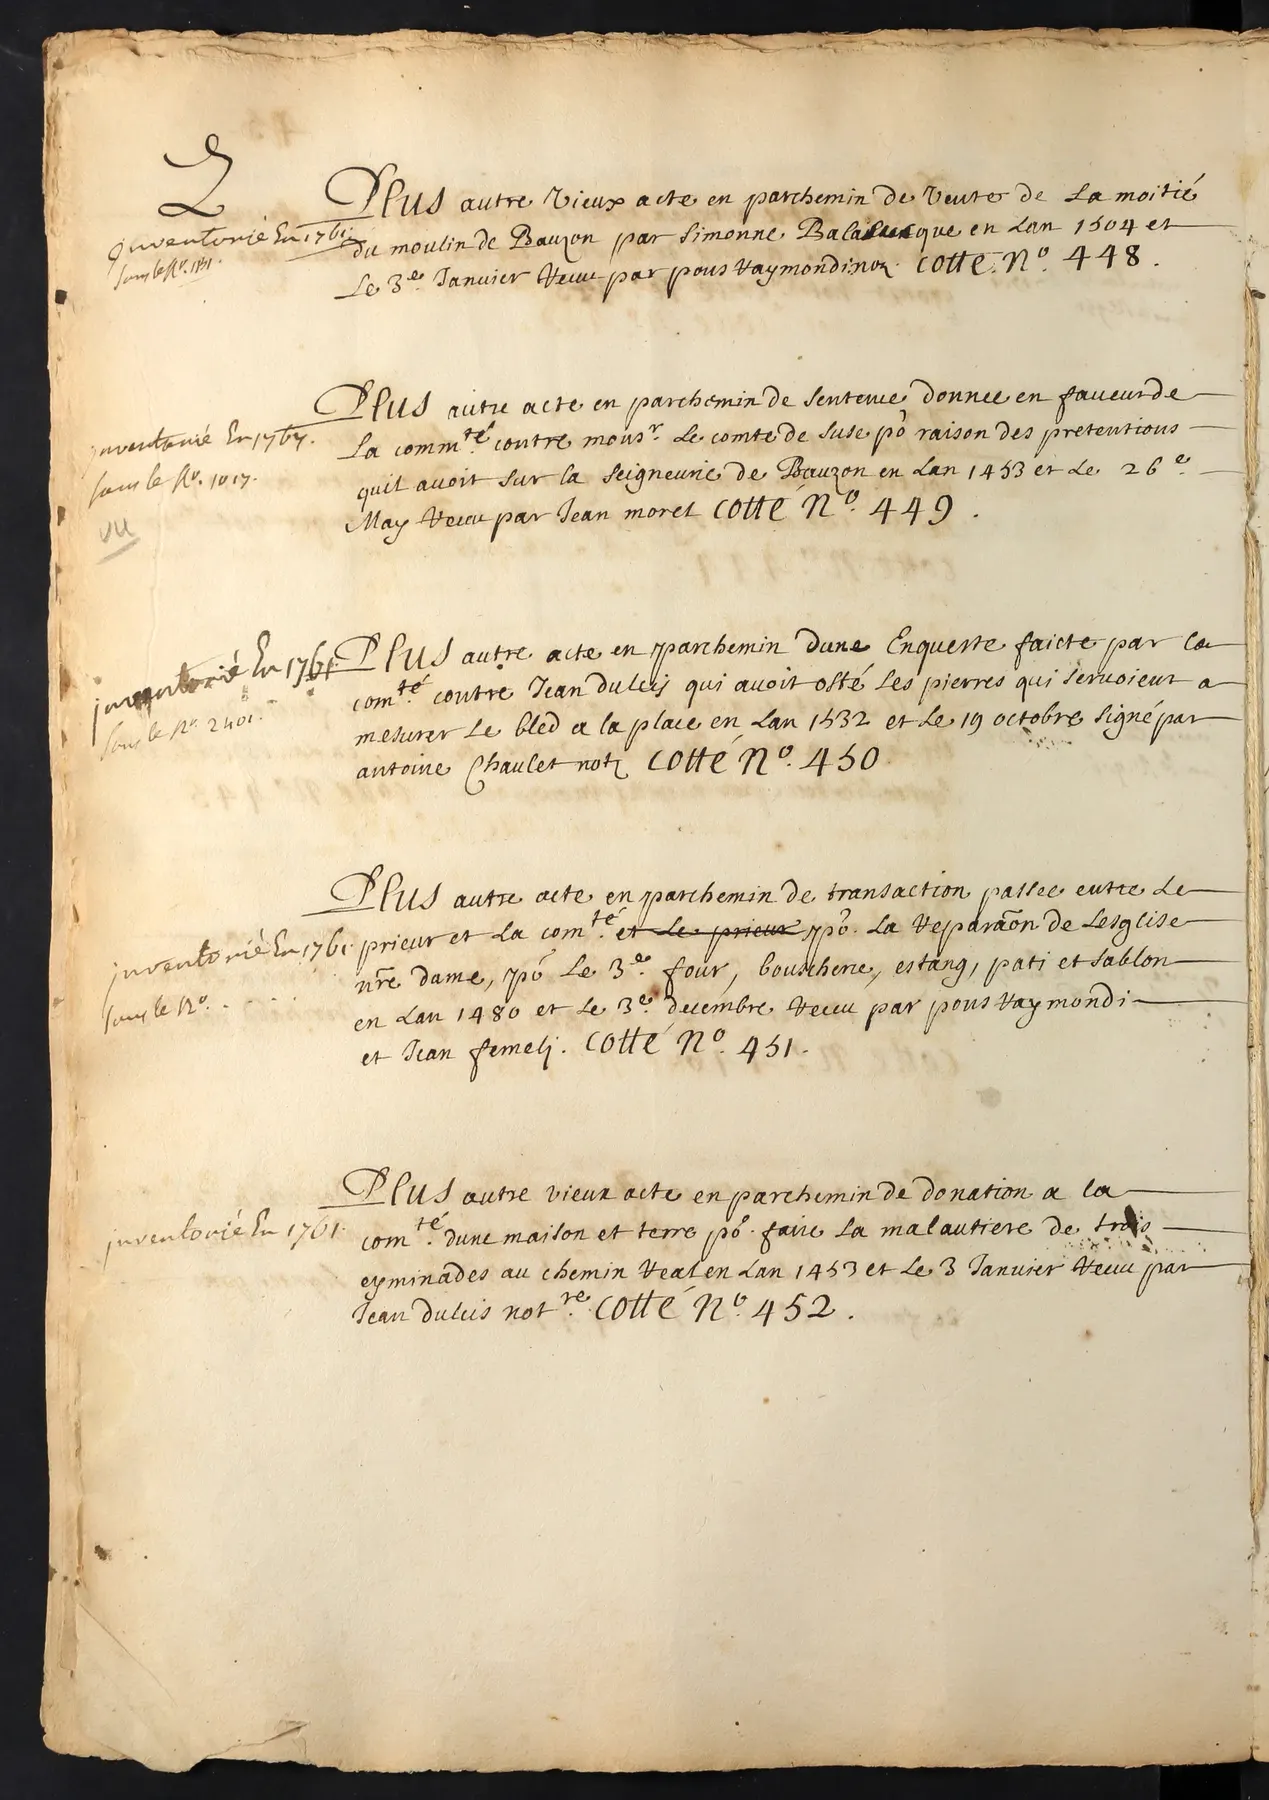 Plus autre vieux acte en parchemin de vente de La moitié
inventorié En 1761.
du moulin de Bauzon par simonne en Lan 1504 et
sous le No.
Le 3e. Janvier Receu par pons Raymondi not. Cotté No. 448.
Plus autre acte en parchemin de sentence donnee en faveur de
inventorié En 1767.
La commté. contre monsr. Le comte de suse po raison des pretentions
sous le No. 1017.
quil avoit sur la seigneurie de Bauzon en Lan 1453 et Le 26e.
vu
May Receu par Jean moret Cotté No. 449.
Plus autre acte en parchemin dune Enqueste faicte par la
inventorié En 1761.
comté. contre Jean dulcis qui avoit osté Les pierres qui servoient a
sous le No. 2401.
mesurer Le bled a la place en Lan 1532 et Le 19 octobre signé par
antoine Chaulet not Cotté No. 450.
Plus autre acte en parchemin de transaction passee entre Le
inventorié En 1761.
prieur et La comté. et Le prieur po. La Reparaõn de Lesglise
nre dame, po Le 3e. four, boucherie, estang, pati et sablon
sous le No. . . . .
en Lan 1480 et Le 3e. decembre Receu par pons Raymondi
et Jean femelj. Cotté No. 451.
Plus autre vieux acte en parchemin de donation a la
inventorié En 1761.
comté. dune maison et terre po. faire La malautiere de trois
eyminades au chemin Real en Lan 1453 et Le 3 Janvier Receu par
Jean dulcis notre. Cotté No. 452.